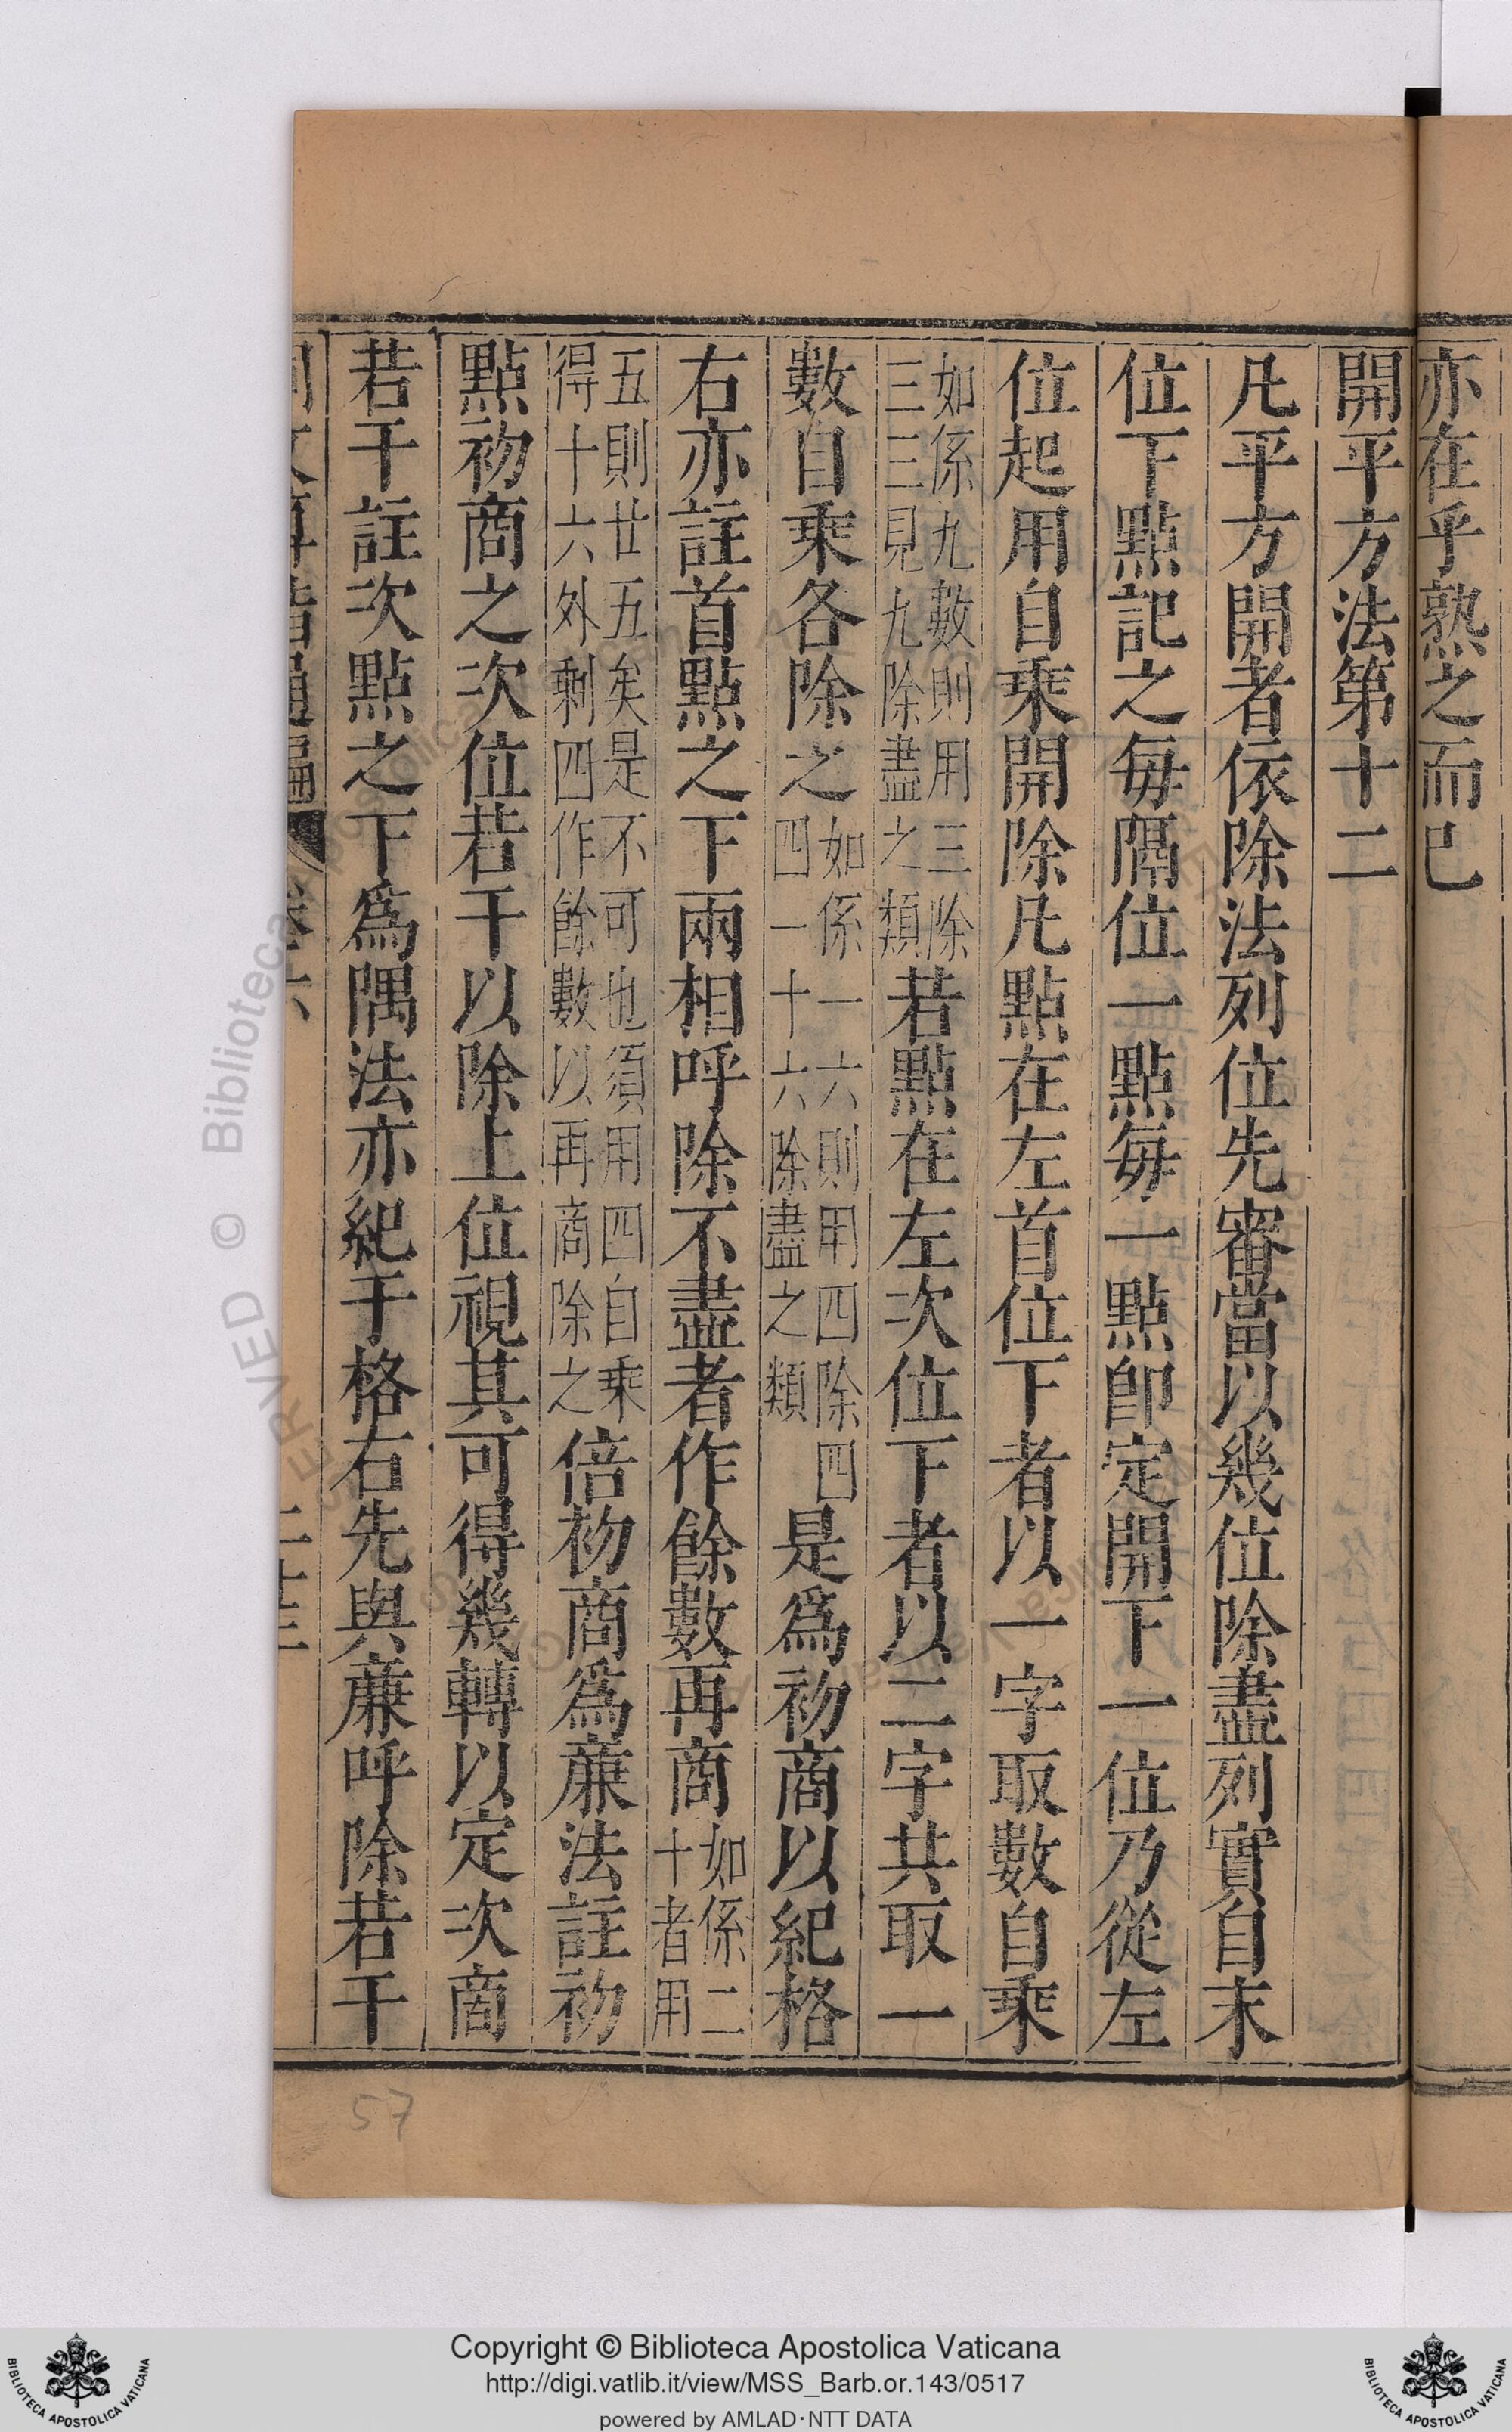 亦在乎熟之而已
開平方法第十二
凡平方開者依除法列位先審當以幾位除盡列實自末
位下點記之每隔位一點每一點卽定開下一位乃從左
位起用自乘開除凡點在左首位下者以一字取數自乘
如係九數則用三除
三三見九除盡之類
若點在左次位下者以二字共取一
數自乘各除之
如係一六則用四除四
四一十六除盡之類
是爲初商以紀格
右亦註首點之下兩相呼除不盡者作餘數再商
如係二
十者用
五則廿五矣是不可也須用四自乘
得十六外剩四作餘數以再商除之
倍初商爲廉法註初
點初商之次位若干以除上位視其可得幾轉以定次商
若干註次點之下爲隅法亦紀于格右先與廉呼除若干
卷六
二十三
57
Copyright © Biblioteca Apostolica Vaticana
http://digi.vatlib.it/view/MSS_Barb.or.143/0517
powered by AMLAD·NTT DATA
BIBLIOTECA APOSTOLICA VATICANA
BIBLIOTECA APOSTOLICA VATICANA